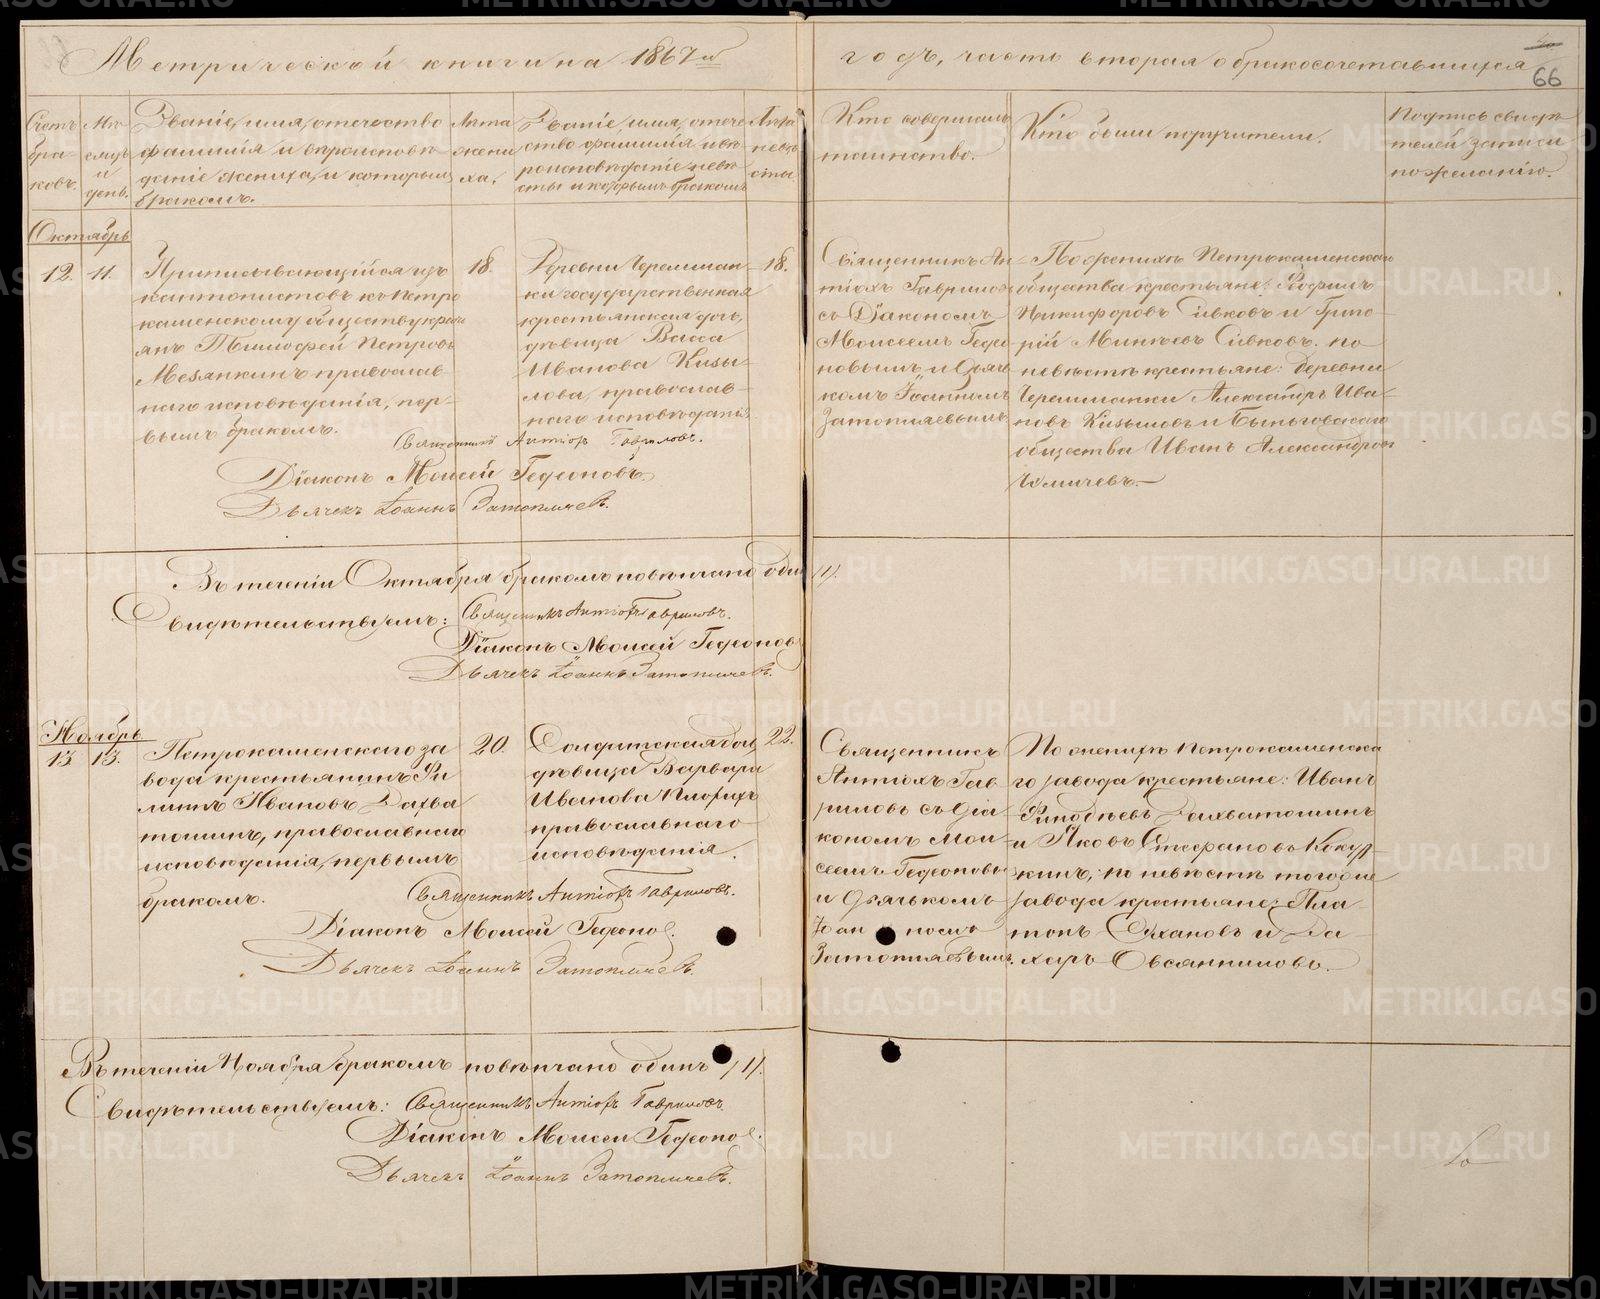 Метрической книги на 1867й
годъ, часть вторая о бракосочетавшихся
66
Счетъ
бра-
ковъ.
Мѣ-
сяцъ
и
день.
Званіе, имя, отечество
фамилія и вѣроисповѣ-
даніе жениха, и которымъ
бракомъ.
Лѣта
жени
ха.
Званіе, имя, отече
ство фамилія и вѣ
роисповѣданіе невѣ
сты и которымъ бракомъ
Лѣта
невѣ
сты.
Кто совершалъ
таинство.
Кто были поручители.
Подпись свидѣ
телей записи
по желанію.
Октябрь
12. 11.
Приписывающійся изъ
кантонистовъ къ Петро
каменскому обществу крестъ
янъ Тимофей Петровъ
Мезянкинъ православ-
наго исповѣданія, пер-
вымъ бракомъ.
18.
Деревни Черемшан-
ки государственная
крестьянская дочь,
дѣвица Васса
Иванова Кизы-
лова, православ-
наго исповѣданія.
18.
Священникъ Ан-
тіохъ Гаврилов
съ Діакономъ
Моисеемъ Гедео
новымъ и Дьяч-
комъ Іоанномъ
Затопляевымъ
По женихѣ Петрокаменскаго
общества крестьяне: Феофилъ
Никифоровъ Сивковъ и Григо-
рій Минѣевъ Сивковъ. по
невѣстѣ крестьяне: деревни
Черемшанки Александръ Ива-
новъ Кизыловъ и Быньговскаго
общества Иванъ Александров
Чемичевъ.
Священникъ Антіохъ Гавриловъ.
Діаконъ Моисей Гедеоновъ
Дьячекъ Іоаннъ Затопляевъ.
Въ теченіи Октября бракомъ повѣнчано один /1/.
Свидѣтельствуемъ: Священникъ Антіохъ Гавриловъ.
Діаконъ Моисей Гедеонов
Дьячекъ Іоаннъ Затопляевъ.
Ноябрь
13 13.
Петрокаменскаго за
вода крестьянинъ Фи
липъ Ивановъ Захва
тошинъ, православнаго
исповѣданія, первымъ
бракомъ.
20.
Солдатская дочь
дѣвица Варвара
Иванова
православнаго
исповѣданія.
22.
Священникъ
Антіохъ Гав
риловъ съ Діа
кономъ Мои-
сеемъ Гедеоновы
и Дьячкомъ
Іоанномъ
Затопляевымъ.
По женихѣ Петрокаменска
го завода крестьяне: Иванъ
Захватошинъ
и Яковъ Стефановъ Кокуш-
кинъ; по невѣстѣ того же
завода крестьяне: Пла-
тонъ Сухановъ и За-
харъ Овсянниковъ.
Священникъ Антіохъ Гавриловъ.
Діаконъ Моисей Гедеонов.
Дьячекъ Іоаннъ Затопляевъ.
Въ теченіи Ноября бракомъ повѣнчано одинъ /1/.
Свидѣтельствуемъ: Священникъ Антіохъ Гавриловъ
Діаконъ Моисей Гедеонов.
Дьячекъ Іоаннъ Затопляевъ.
METRIKI.GASO-URAL.RU